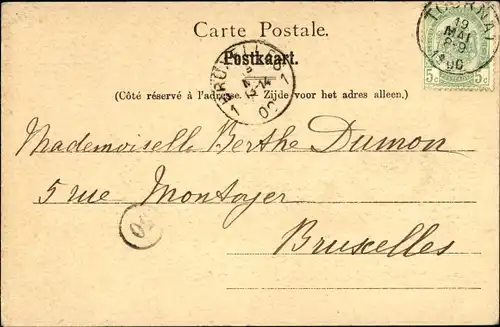 Carte Postale.
Postkaart.
(Côté réservé à l'adresse. — Zijde voor het adres alleen.)
TOURNAI
19
MAI
8-9
1900
5 c 5 c
BRUXELLES
1 1
Mademoiselle Berthe Dumon
5 rue Montoyer
Bruxelles